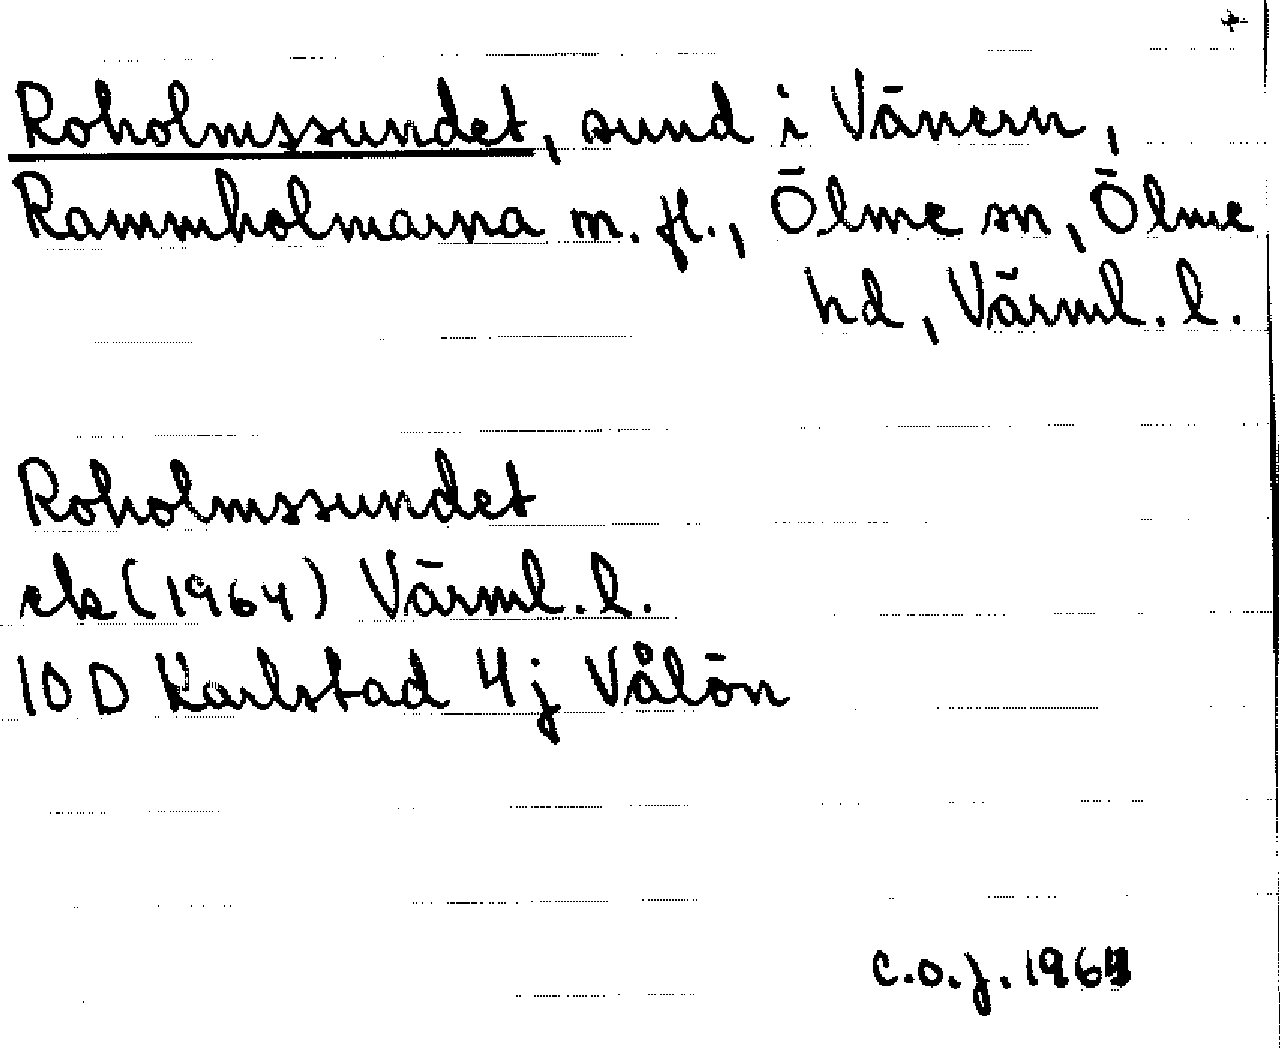 +
Roholmssundet, sund i Vänern,
Rammholmarna m.fl., Ölme sn, Ölme
hd, Värml. l.
Roholmssundet
ek (1964) Värml. l.
10 D Karlstad 4j Vålön
c.o.j. 1964